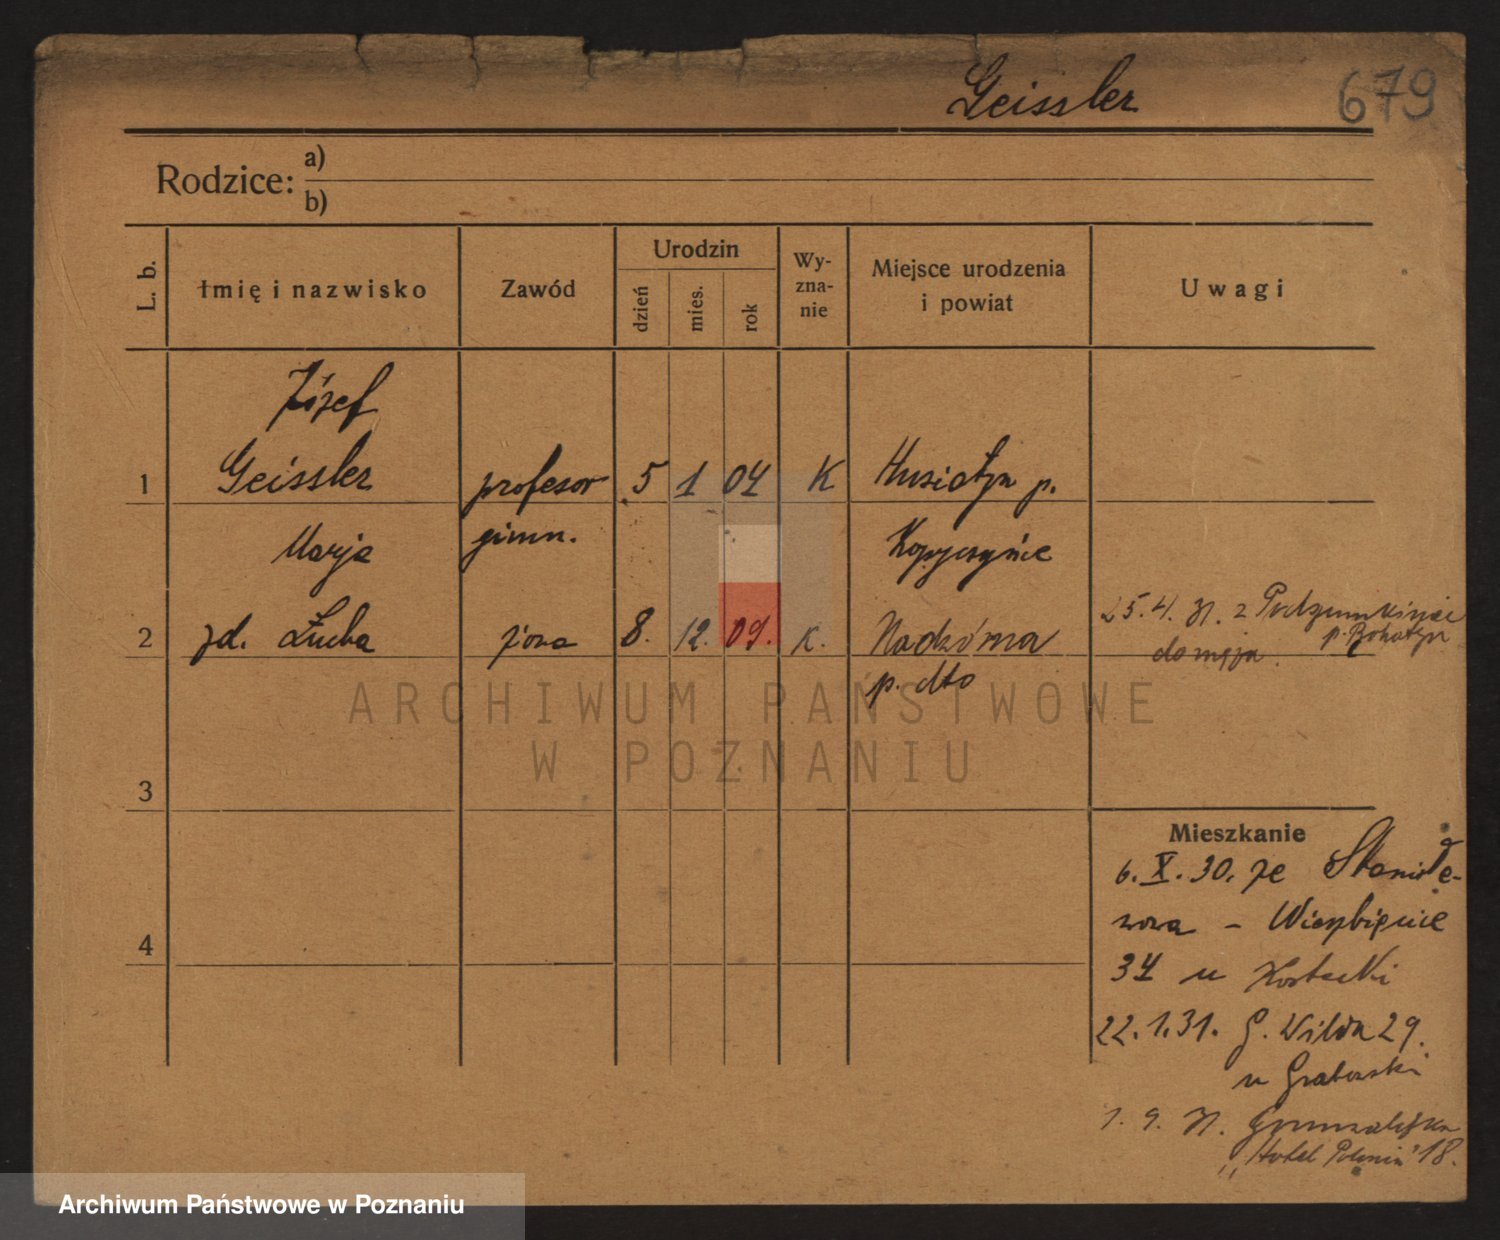 Geissler 679
Rodzice: a)
b)
L. b. Imię i nazwisko Zawód Urodzin dzień mies. rok Wyzna-nie Miejsce urodzenia i powiat Uwagi
Józef
1 Geissler profesor 5 1 04 K Husiatyn p.
Marja gimn. Kopyczyńce
2 zd. Żuba żona 8. 12. 09. K. Nadwórna
p. dto
25.4.31. z
do męża.
ARCHIWUM PAŃSTWOWE
W POZNANIU
3
Mieszkanie
6.X.30. ze Stanisła-
wowa - Wierzbięcice
4
34 u Kostecki
22.1.31. G. Wilda 29.
u Grabowski
1. 9. 31. Grunwaldzka
"Hotel Polonia" 18.
Archiwum Państwowe w Poznaniu